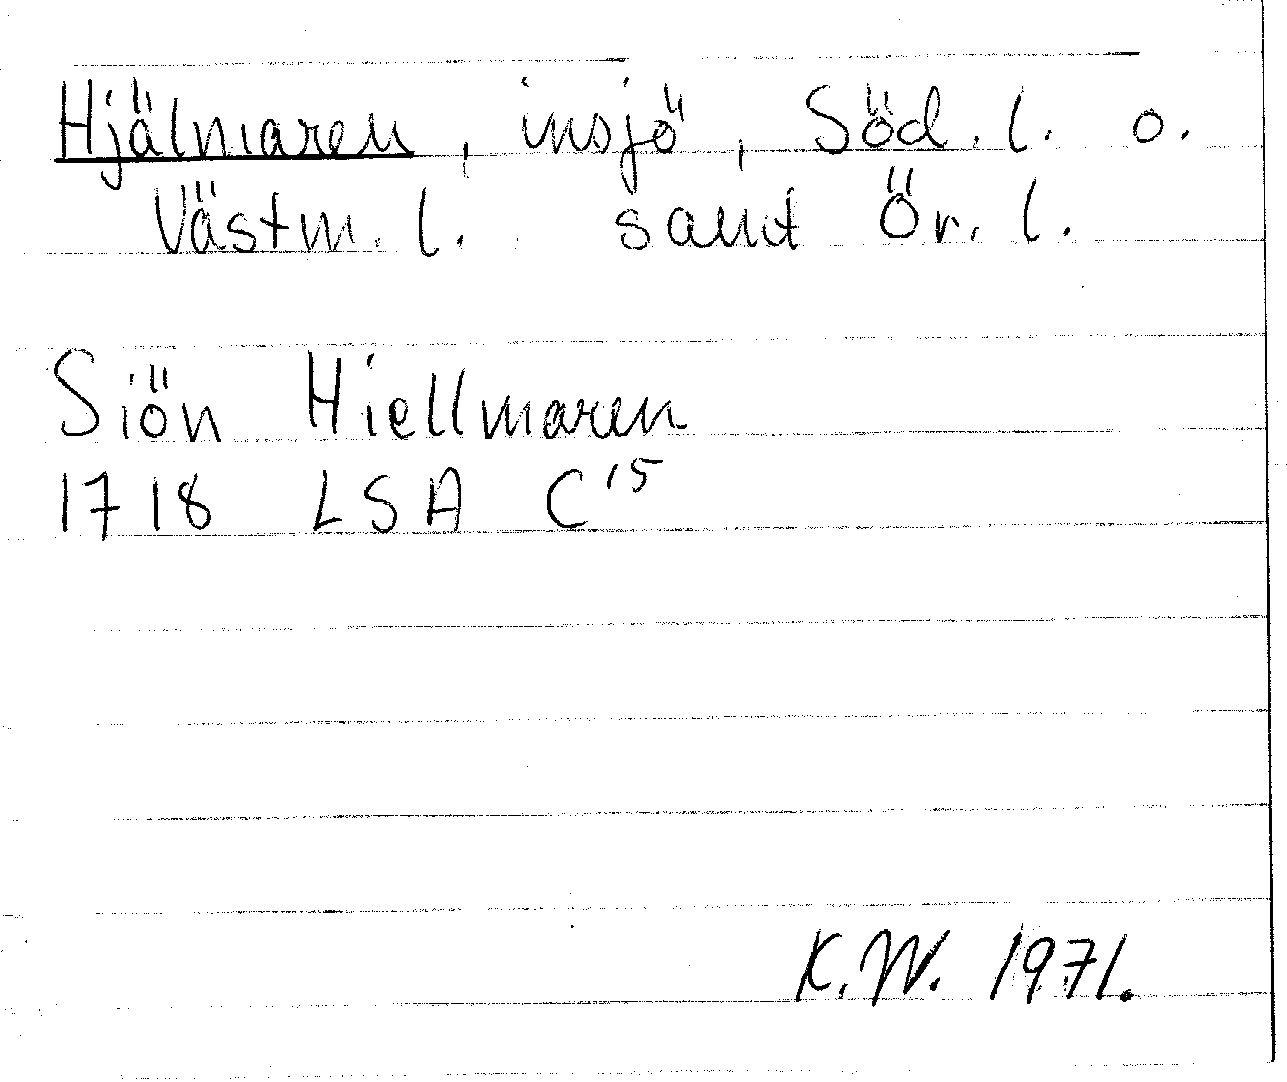 Hjälmaren, insjö, Söd. l. o.
Västm. l. samt Ör. l.
Siön Hiellmaren
1718 LSA C15
K.W. 1971.